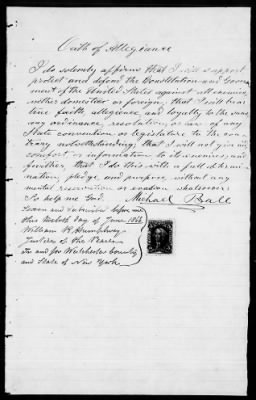 Oath of Allegiance
I do solemnly affirm that I will support
protect and defend the Constitution and Govern-
ment of the United States against all enemies,
wether domestic or foreign, that I will bear
true faith, allegiance, and loyalty to the same
any ordinance, resolution, or law of any
State convention or legislature to the con-
trary notwithstanding; that I will not give aid
comfort or information to its enemies, and
further, that I do this with a full determi-
nation, pledge, and purpose, without any
mental reservation or evasion whatsoever
So help me God. Michael Ball
Sworn and subscribed before me
this day of June
William H. Humphrey
Justice of the Peace
In and for Westchester County
and State of New York